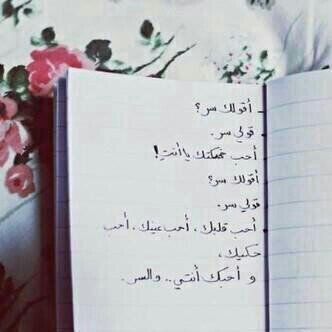 - أقولك سر؟
قولي سر.
- أحب ضحكتك يا أنتِ!
أقولك سر؟
- قولي سر.
- أحب قلبك، أحب عينك، أحب
حكيك،
و أحبك أنتي.. والسر.